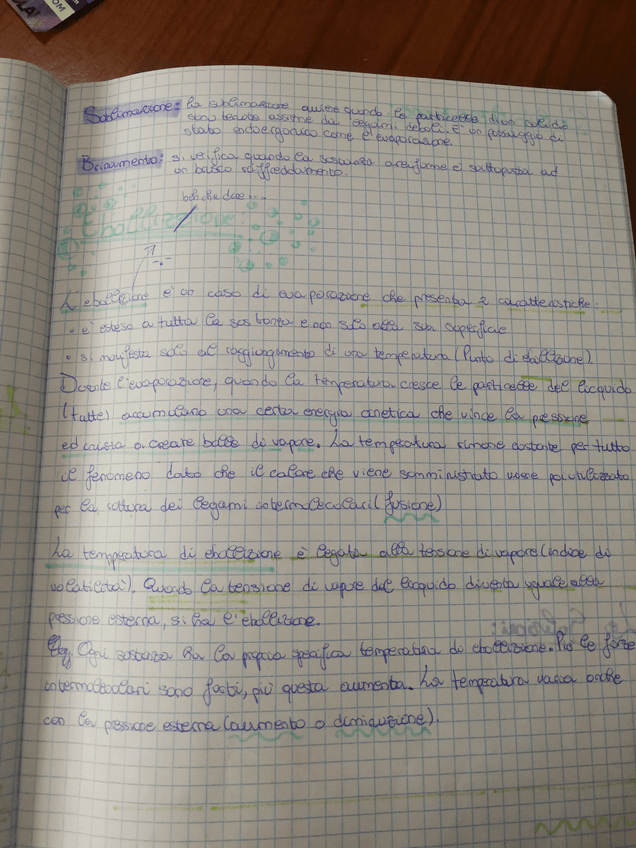 OM
Sublimazione: la sublimazione avviene quando le particelle di un solido
sono tenute assieme da legami deboli. È un passaggio di
stato endoergonico come l'evaporazione.
Brinamento: si verifica quando la sostanza aeriforme è sottoposta ad
un brusco raffreddamento.
Ebollizione:
L'ebollizione è un caso di evaporazione che presenta 2 caratteristiche:
• è estesa a tutta la sostanza e non solo alla sua superficie
• si manifesta solo al raggiungimento di una temperatura (Punto di ebollizione)
Durante l'evaporazione, quando la temperatura cresce le particelle del liquido
(tutte) accumulano una certa energia cinetica che vince la pressione
ed inizia a creare bolle di vapore. La temperatura rimane costante per tutto
il fenomeno dato che il calore che viene somministrato viene poi utilizzato
per la rottura dei legami intermolecolari (fusione)
La temperatura di ebollizione è legata alla tensione di vapore (indice di
volatilità). Quando la tensione di vapore del liquido diventa uguale alla
pressione esterna, si ha l'ebollizione.
Ogni sostanza ha la propria specifica temperatura di ebollizione. Più le forze
intermolecolari sono forti, più questa aumenta. La temperatura varia anche
con la pressione esterna (aumento o diminuzione).